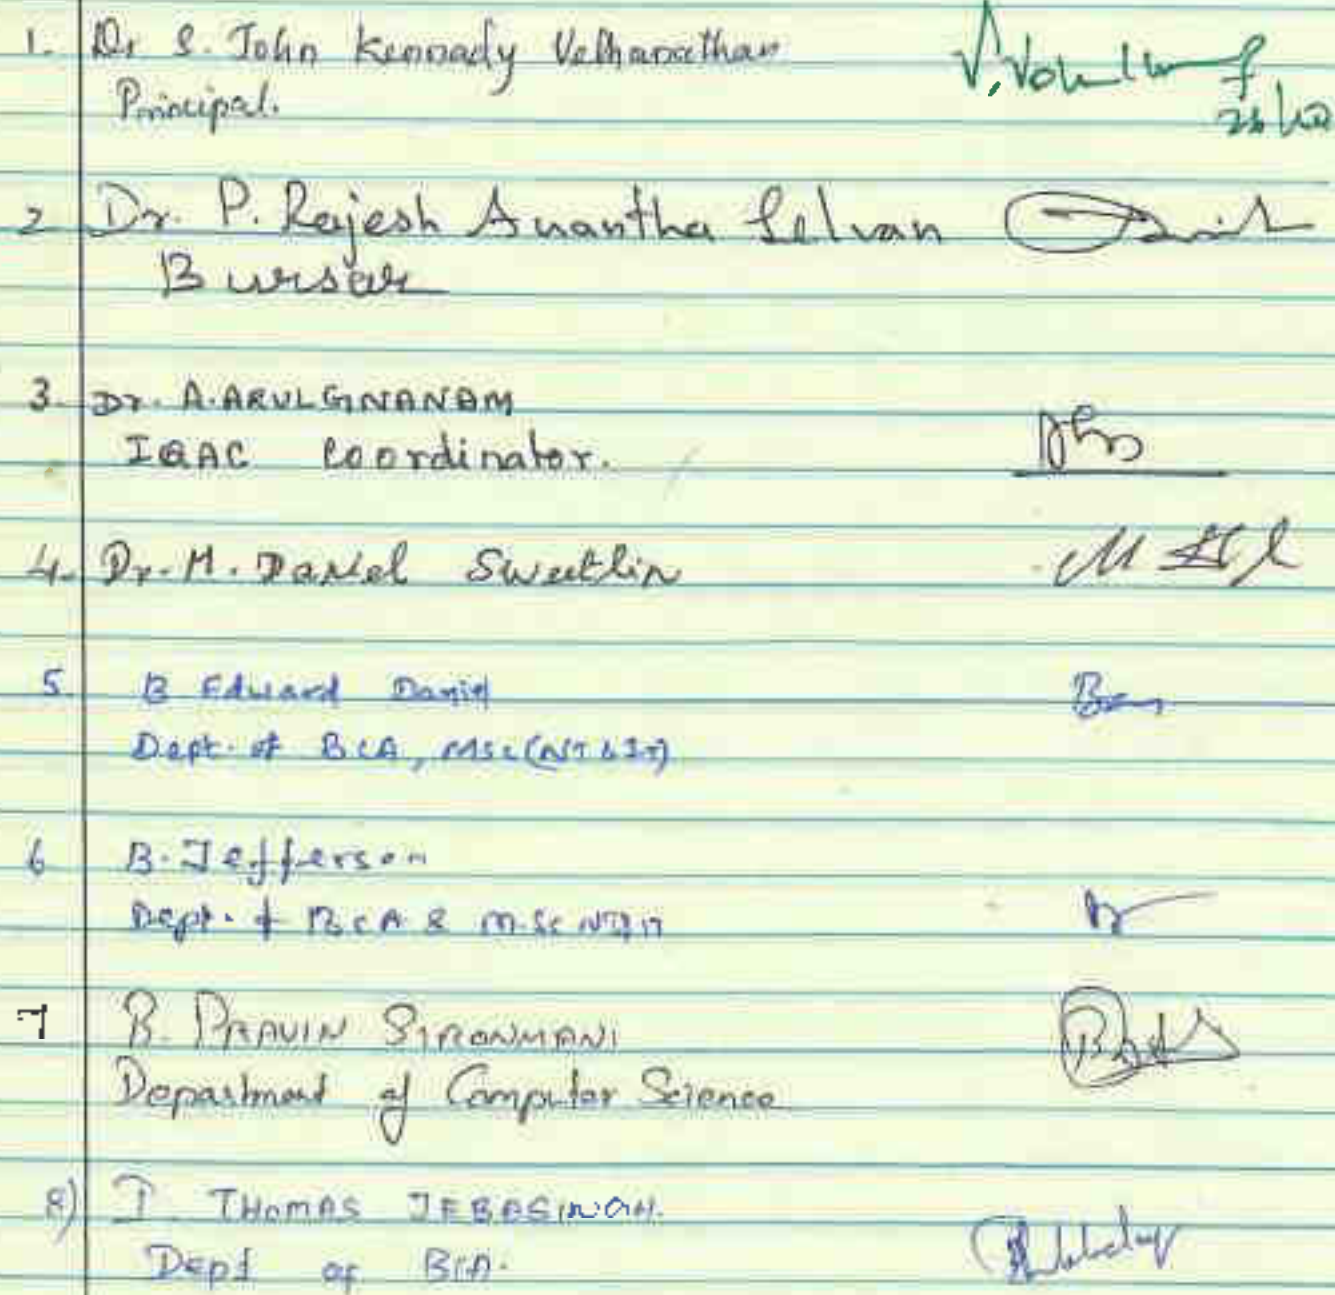 1. Dr S. John Kennady Vethanathan
Principal.
2 Dr. P. Rajesh Anantha Selvan
Bursar
3. Dr. A. ARULGNANAM
IQAC Coordinator.
4. Dr. M. Daniel Sweetlin
5 B Edward Daniel
Dept. of BCA, MSc(NT & IT)
6 B. Jefferson
Dept. of BCA & M.Sc NT & IT
7 B. PRAVIN SIRONMANI
Department of Computer Science
8) I. THOMAS JEBASINGH.
Dept of BCA.